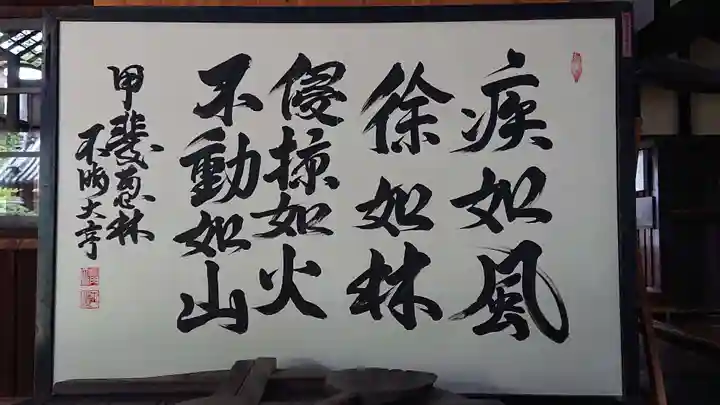 疾如風
徐如林
侵掠如火
不動如山
甲斐惠林
不勝大亨